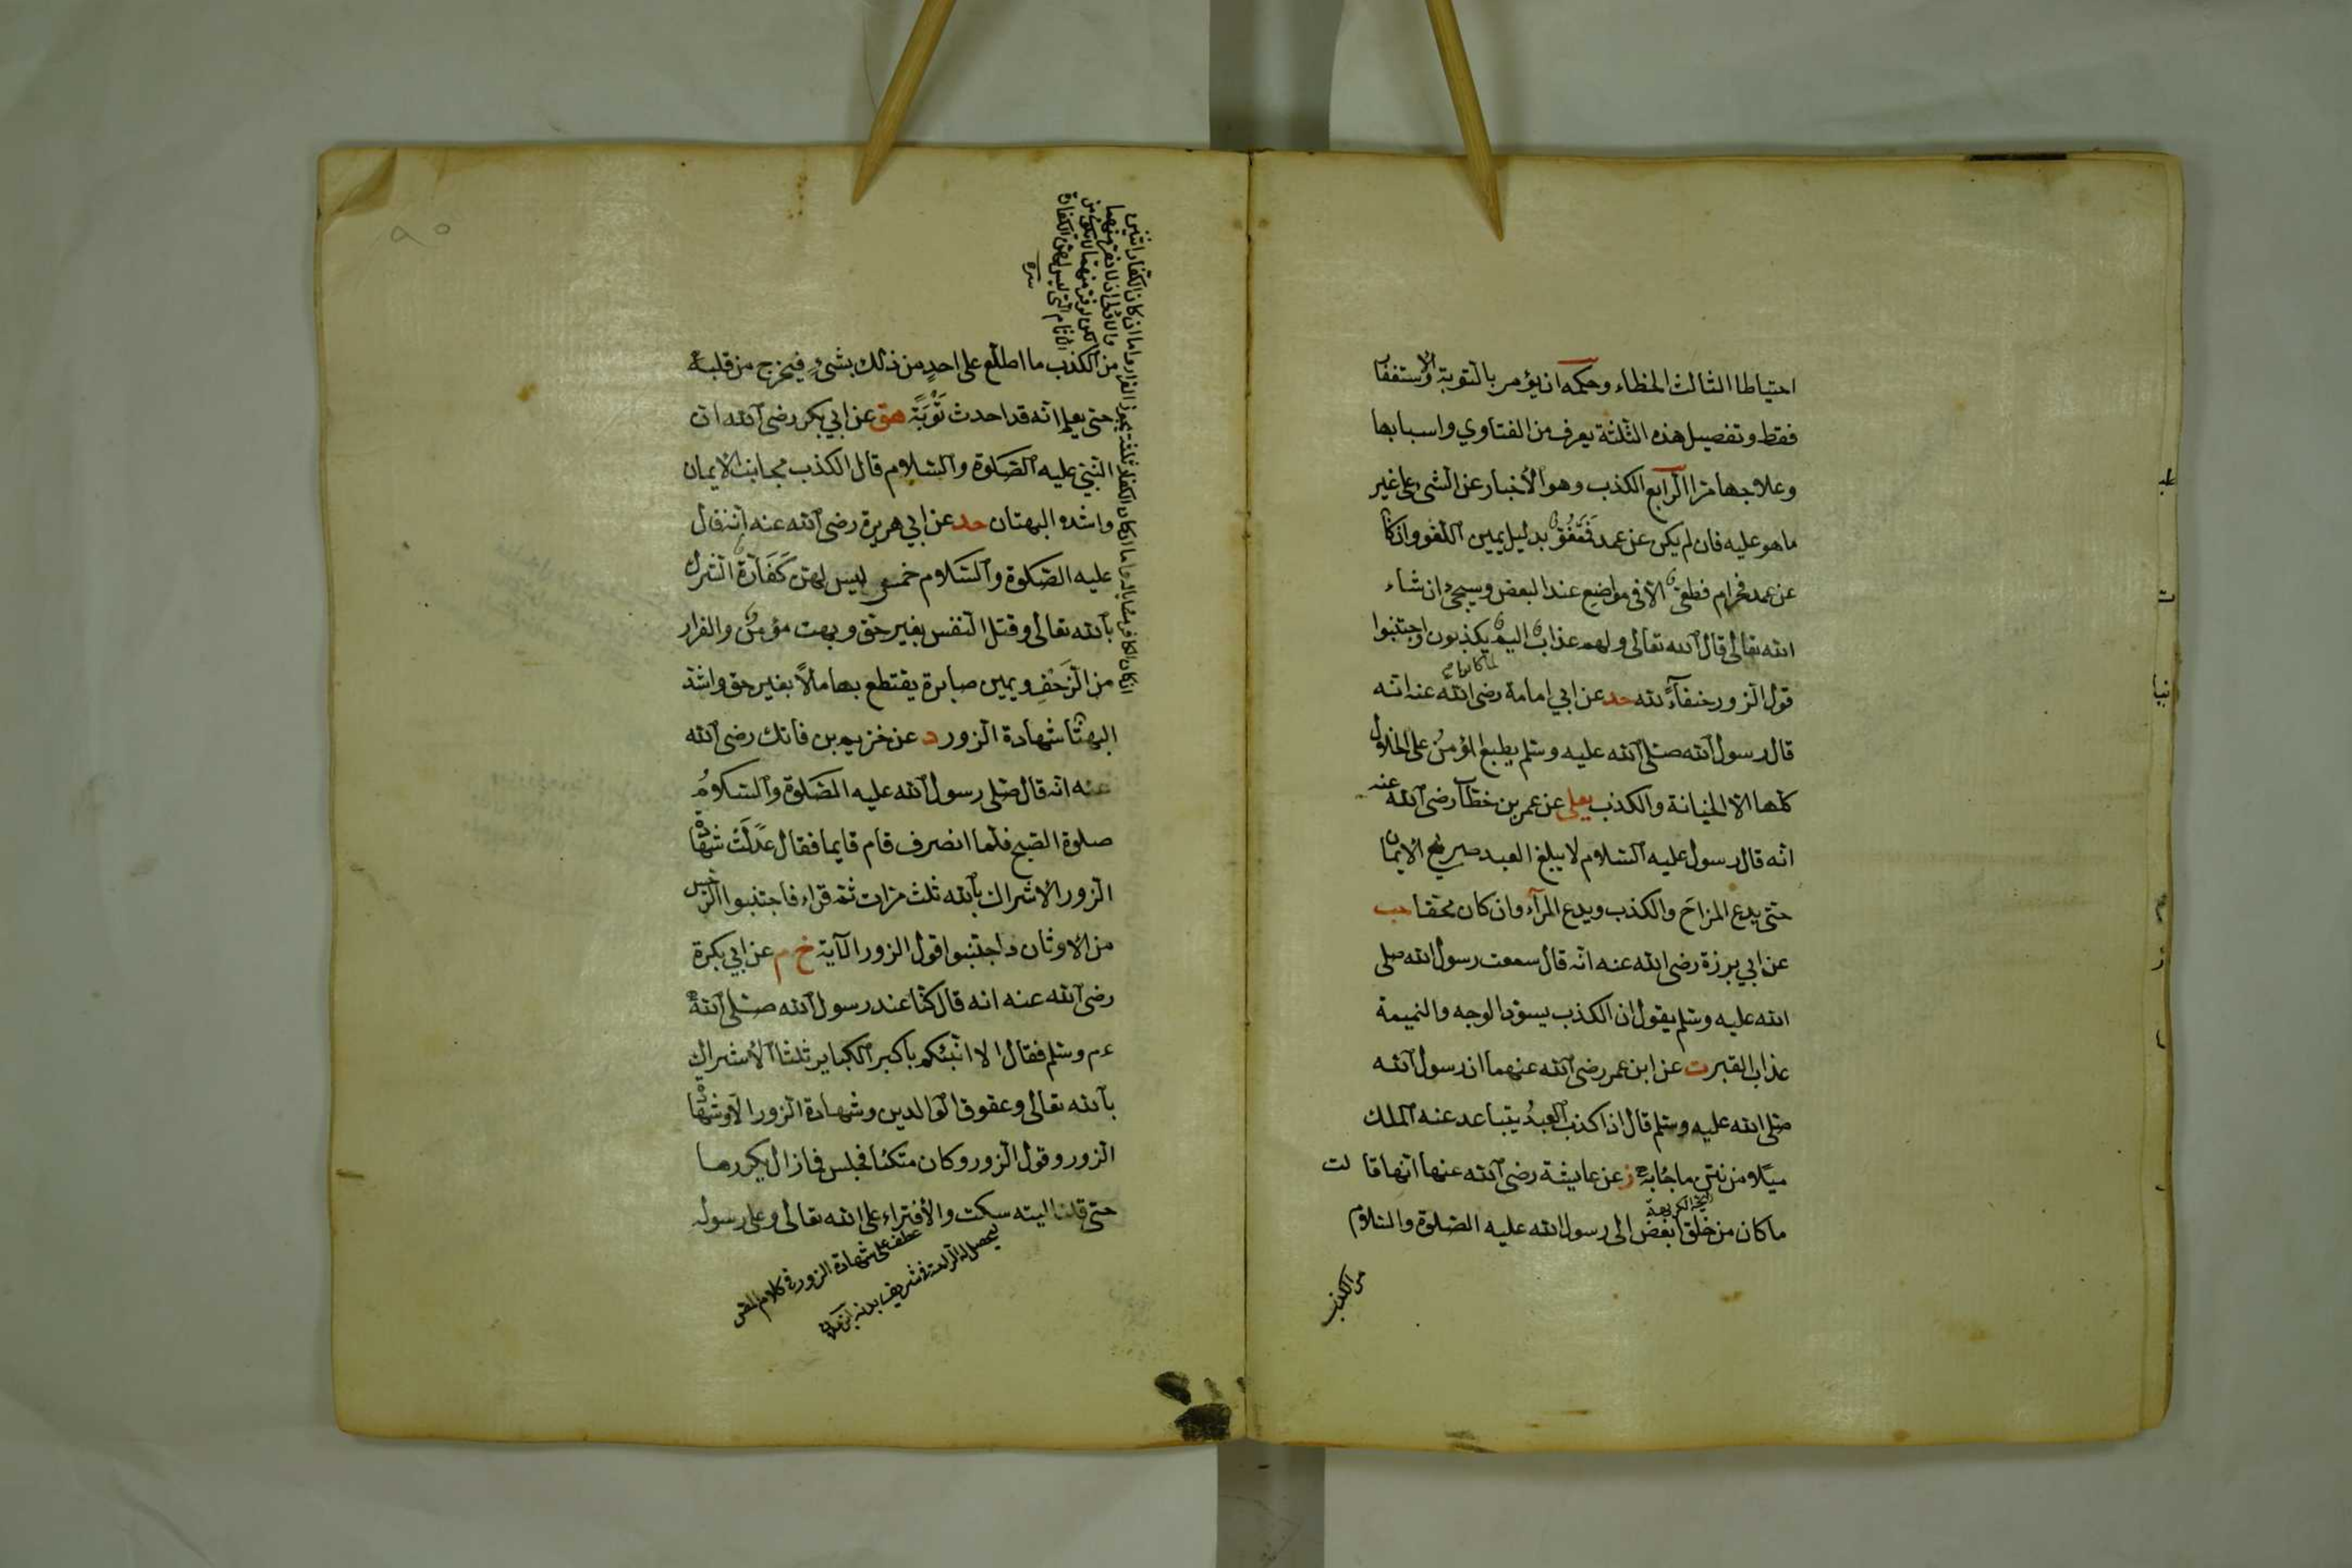 احتياطا الثالث الخطاء وحكمه ان يؤمر بالتوبة والاستغفا
فقط وتفصيل هذه الثلثة يعرف من الفتاوي واسبابها
وعلاجها مرا الرابع الكذب وهو الأخبار عن الشئ على غير
ما هو عليه فان لم يكن عن عمد فمعفوّ بدليل يمين اللغو وان كا
عن عمد فحرام قطعيّ الا فى مواضيع عند البعض وسيجئ ان شاء
الله تعالى قال الله تعالى ولهم عذاب اليم يكذبون واجتنبوا
بما كانوا
قول الزور حنفآء لله حد عن ابي امامة رضى الله عنه انه
قال رسول الله صلى الله عليه وسلم يطبع المؤمنُ على الخلال
كلها الا الخيانة والكذب يعلى عن عمر بن خطّاب رضى الله عنه
انه قال رسول عليه السلام لا يبلغ العبد صريح الايمان
حتى يدع المزاحَ والكذب ويدع المرآء وان كان محقا حب
عن ابي برزة رضى الله عنه انه قال سمعت رسول الله صلى
الله عليه وسلم يقول ان الكذب يسود الوجه والنميمة
عذاب القبر ت عن ابن عمر رضى الله عنهما ان رسول الله
صلى الله عليه وسلم قال اذا كذب العبدُ يتباعد عنه الملك
ميلا من نتن ما جاء به ز عن عايشة رضى الله عنها انها قا لت
ما كان من خلق ابغض الى رسول الله عليه الصلوة والسلام
من الكذب
من الكذب ما اطلع على احدٍ من ذلك بشئٍ فيخرج من قلبه
حتى يعلم انه قد احدث تَوْبَةً هق عن ابي بكر رضى الله ان
النبي عليه الصلوة والسلام قال الكذب مجانب الايمان
واشده البهتان حد عن ابي هريرة رضى الله عنه انه قال
عليه الصلوة والسلام خمس ليس لهن كَفَّارة الشرك
بالله تعالى وقتل النفس بغير حق وبهت مؤمن والفرار
من الزَحْفِ ويمين صابرة يقتطع بها مالاً بغير حق واشد
البهتا شهادة الزور د عن خزيم بن فاتك رضى الله
عنه انه قال صلى رسول الله عليه الصلوة والسلامُ
صلوة الصبح فلما انصرف قام قايما فقال عدلت شها
الزور الاشراك بالله ثلث مرات ثم قراء فاجتنبوا الرجس
من الاوثان واجتنبوا قول الزور الآية خ م عن ابي بكرة
رضى الله عنه انه قال كنا عند رسول الله صلى الله
عم وسلم فقال الا انبئكم باكبر الكباير ثلثا الأشراك
بالله تعالى وعقوق الوالدين وشهادة الزور الا وشها
الزور وقول الزور وكان متكئا فجلس فما زال يكررها
حتى قلنا ليته سكت والأفتراء على الله تعالى وعلى رسوله
عطف على شهادة الزور فى كلام المص